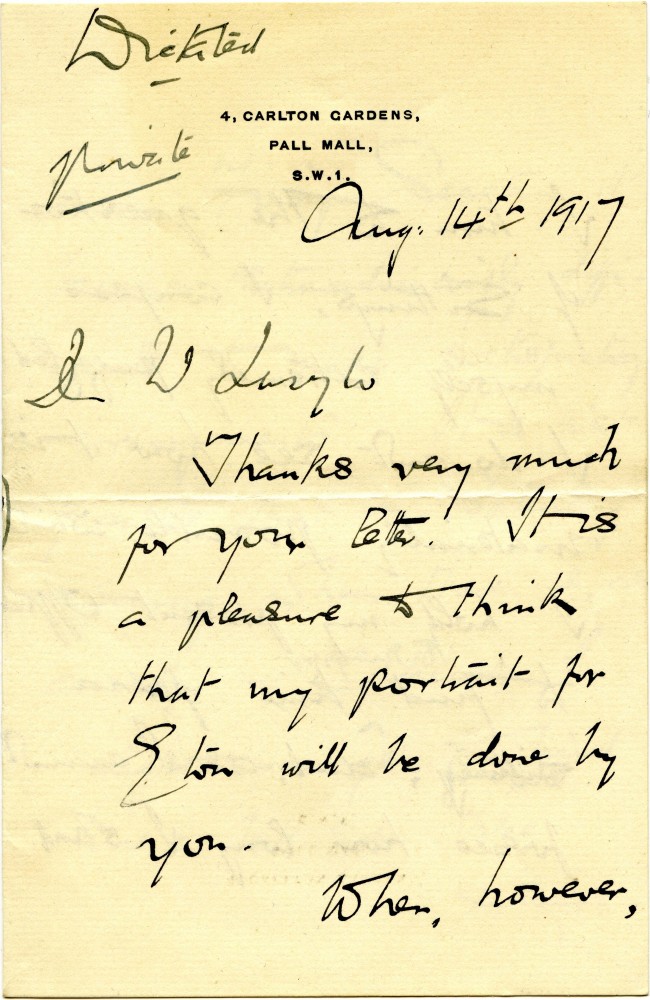 Dictated
4, CARLTON GARDENS,
PALL MALL,
S.W.1.
Private
Aug: 14th 1917
Dr W Laszlo
Thanks very much
for your letter. It is
a pleasure to think
that my portrait for
Eton will be done by
you.
When, however,